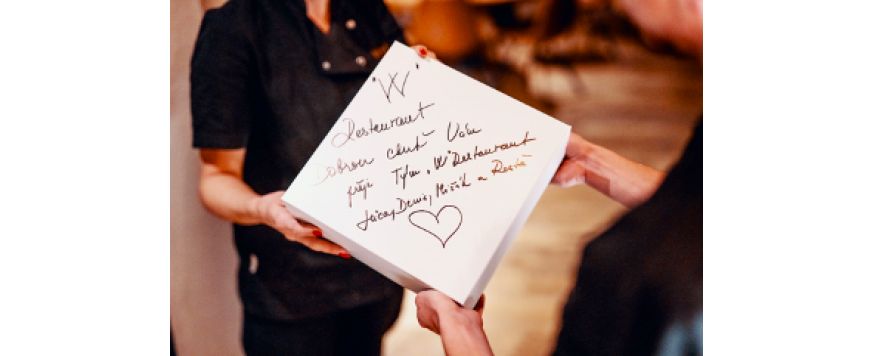 "W"
Restaurant
Dobrou chuť Vám
přeje Tým „W" Restaurant
Denis, Mišák a